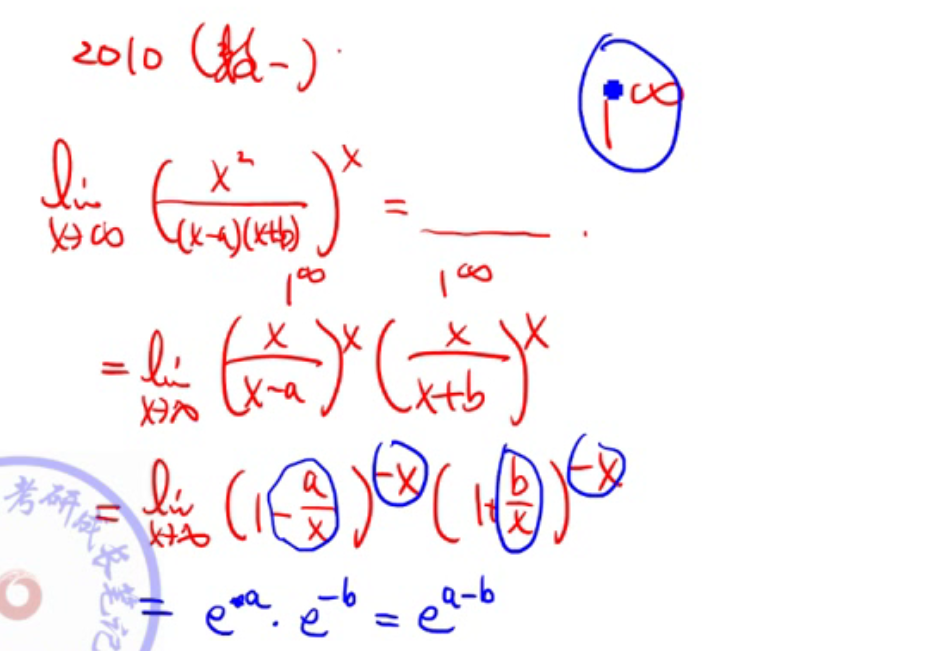 2010 (数一)
1^∞
lim_{x→∞} (x²/((x-a)(x+b)))^x = ____ .
1^∞ 1^∞
= lim_{x→∞} (x/(x-a))^x (x/(x+b))^x
= lim_{x→∞} (1-a/x)^{-x} (1+b/x)^{-x}
= e^a · e^{-b} = e^{a-b}
考研成长笔记